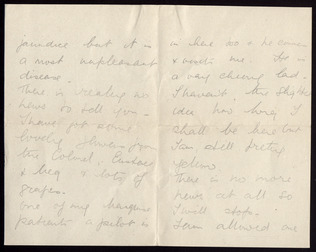 jaundice but it is
a most unpleasant
disease.
There is really no
news to tell you.
I have got some
lovely flowers from
the Colonel, Eustace
& lots of
grapes.
one of my hangar
patients a pilot is
in here too & he comes
& me. He is
a very cheery lad.
I haven't the slightest
idea how long I
shall be here but
I am still pretty
yellow.
There is no more
news at all so
I will stop.
I am allowed one